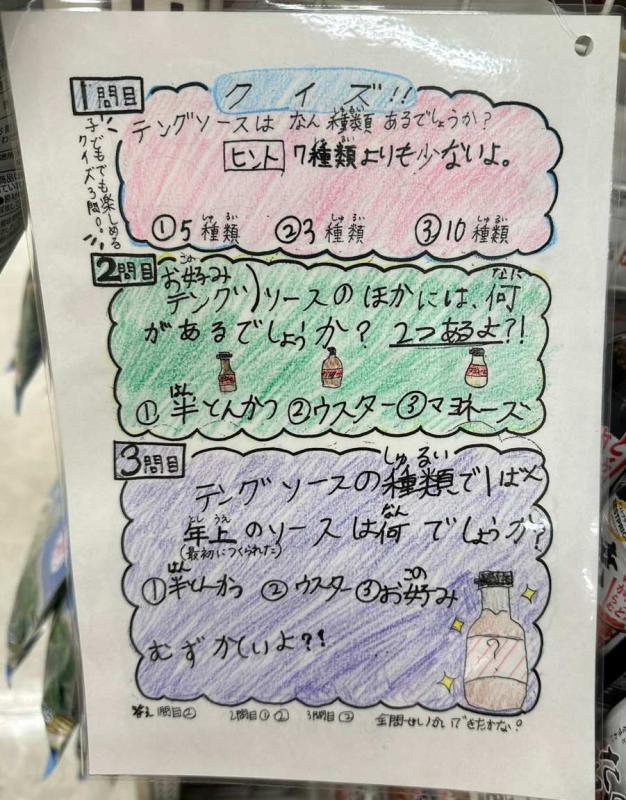 1問目
クイズ!!
子どもでも楽しめる
クイズ3問。
テングソースは なん種類 あるでしょうか?
ヒント 7種類よりも少ないよ。
①5種類 ②3種類 ③10種類
2問目
お好み
テング)ソースのほかには、何
があるでしょうか? 2つあるよ?!
①半とんかつ ②ウスター ③マヨネーズ
3問目
テングソースの種類で1ばん
年上のソースは何でしょうか?
(最初につくられた)
①半とんかつ ②ウスター ③お好み
むずかしいよ?!
?
答え 1問目② 2問目①② 3問目② 全問せいかいできたかな?